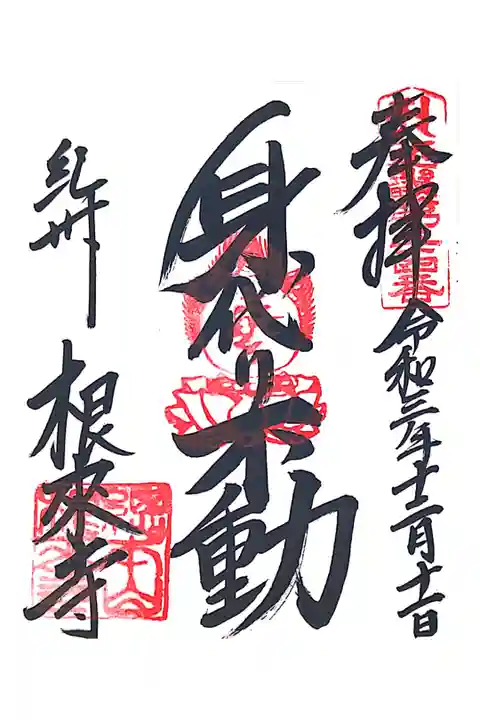 奉拝 令和三年十二月十一日
身代り不動
紀州 根来寺